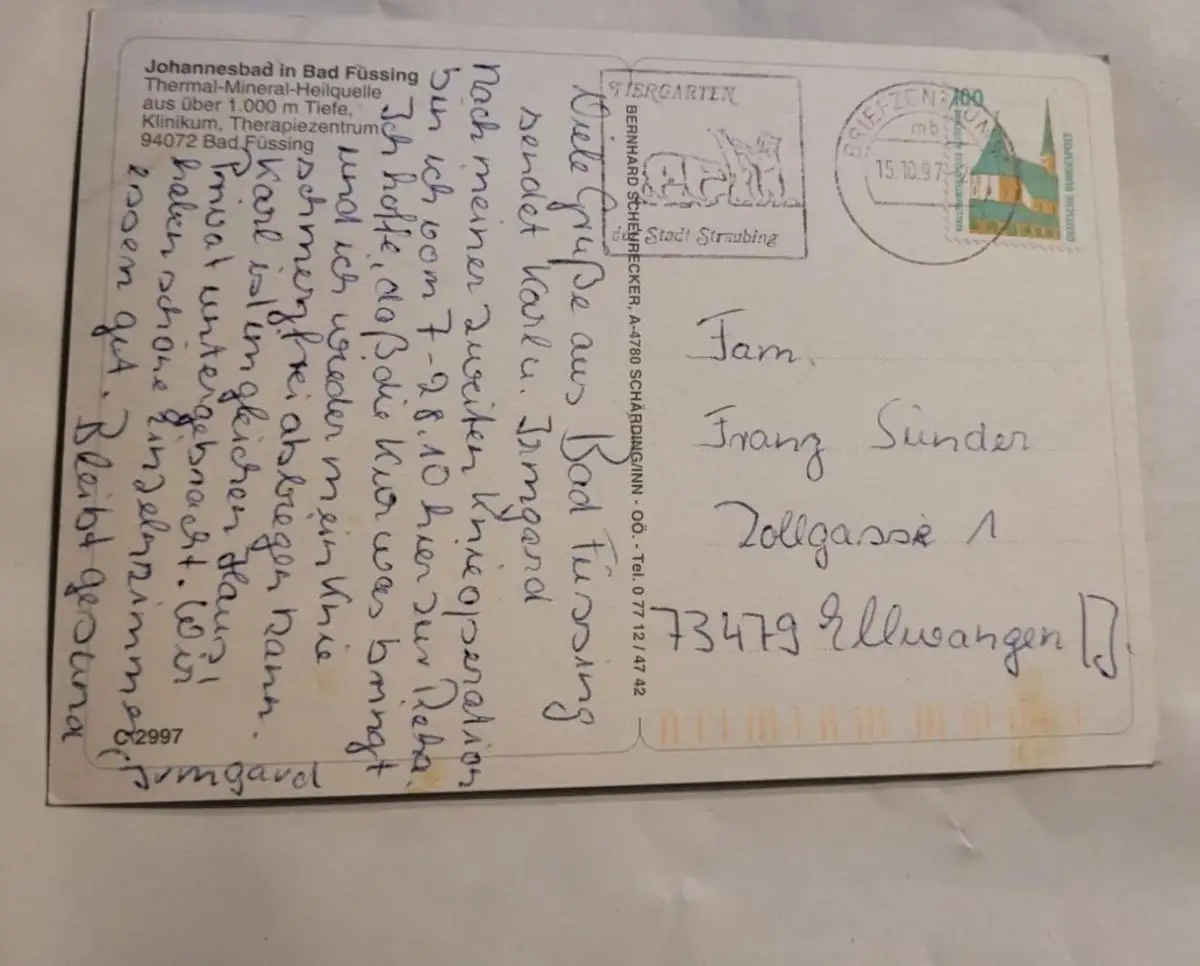 Johannesbad in Bad Füssing
Thermal-Mineral-Heilquelle
aus über 1.000 m Tiefe,
Klinikum, Therapiezentrum
94072 Bad Füssing
Viele Grüße aus Bad Füssing
sendet Karl u. Irmgard
Nach meiner zweiten Knieoperation
bin ich vom 7-28.10 hier zur Reha.
Ich hoffe, daß die Kur was bringt
und ich wieder mein Knie
schmerzfrei abbiegen kann.
Karl ist im gleichen Haus
Privat untergebracht. Wir
haben schöne Einzelnzimmer,
essen gut. Bleibt gesund
Irmgard
C 2997
BERNHARD SCHEURECKER, A-4780 SCHÄRDING/INN - OÖ. - Tel. 0 77 12 / 47 42
TIERGARTEN
der Stadt Straubing
BRIEFZENTRUM
mb
15.10.97
100
Fam.
Franz Sünder
Zollgasse 1
73479 Ellwangen D.